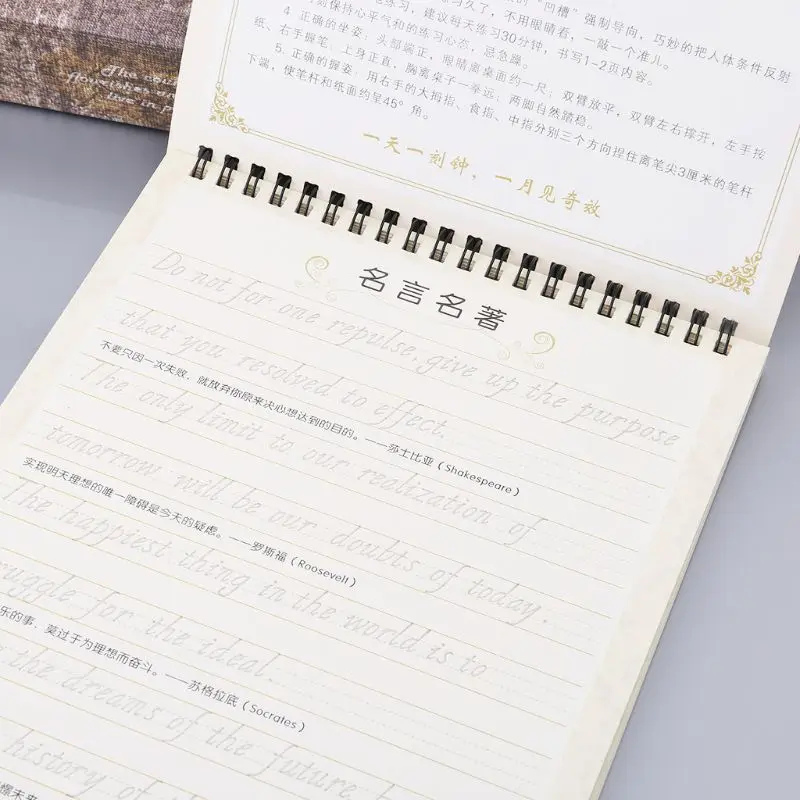 The
live in
的“凹槽”强制导向，巧妙的把人体条件反射
练习久了，不用眼睛看，一敲一个准儿。
练习，建议每天练习30分钟，书写1-2页内容。
刻保持心平气和的练习心态，忌急躁。
4. 正确的坐姿，头部端正，眼睛离桌面约一尺；双臂放平，双臂左右撑开，左手按
纸、右手握笔；上身正直，胸离桌子一拳远；两脚自然踏稳。
5. 正确的握姿：用右手的大拇指、食指、中指分别三个方向捏住离笔尖3厘米的笔杆
下端，使笔杆和纸面约呈45°角。
一天一刻钟，一月见奇效
名言名著
Do not for one repulse, give up the purpose
that you resolved to effect.
不要只因一次失败，就放弃你原来决心想达到的目的。——莎士比亚（Shakespeare）
The only limit to our realization of
tomorrow will be our doubts of today.
实现明天理想的唯一障碍是今天的疑虑。——罗斯福（Roosevelt）
The happiest thing in the world is to
ruggle for the ideal.
乐的事，莫过于为理想而奋斗。——苏格拉底（Socrates）
the dreams of the future
history of
憬未来